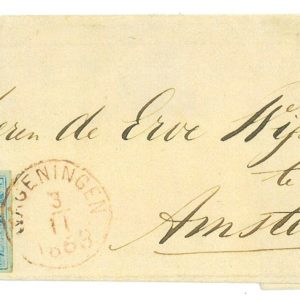 eren de Erve Wij
te
Amste
WAGENINGEN
3
11
1869